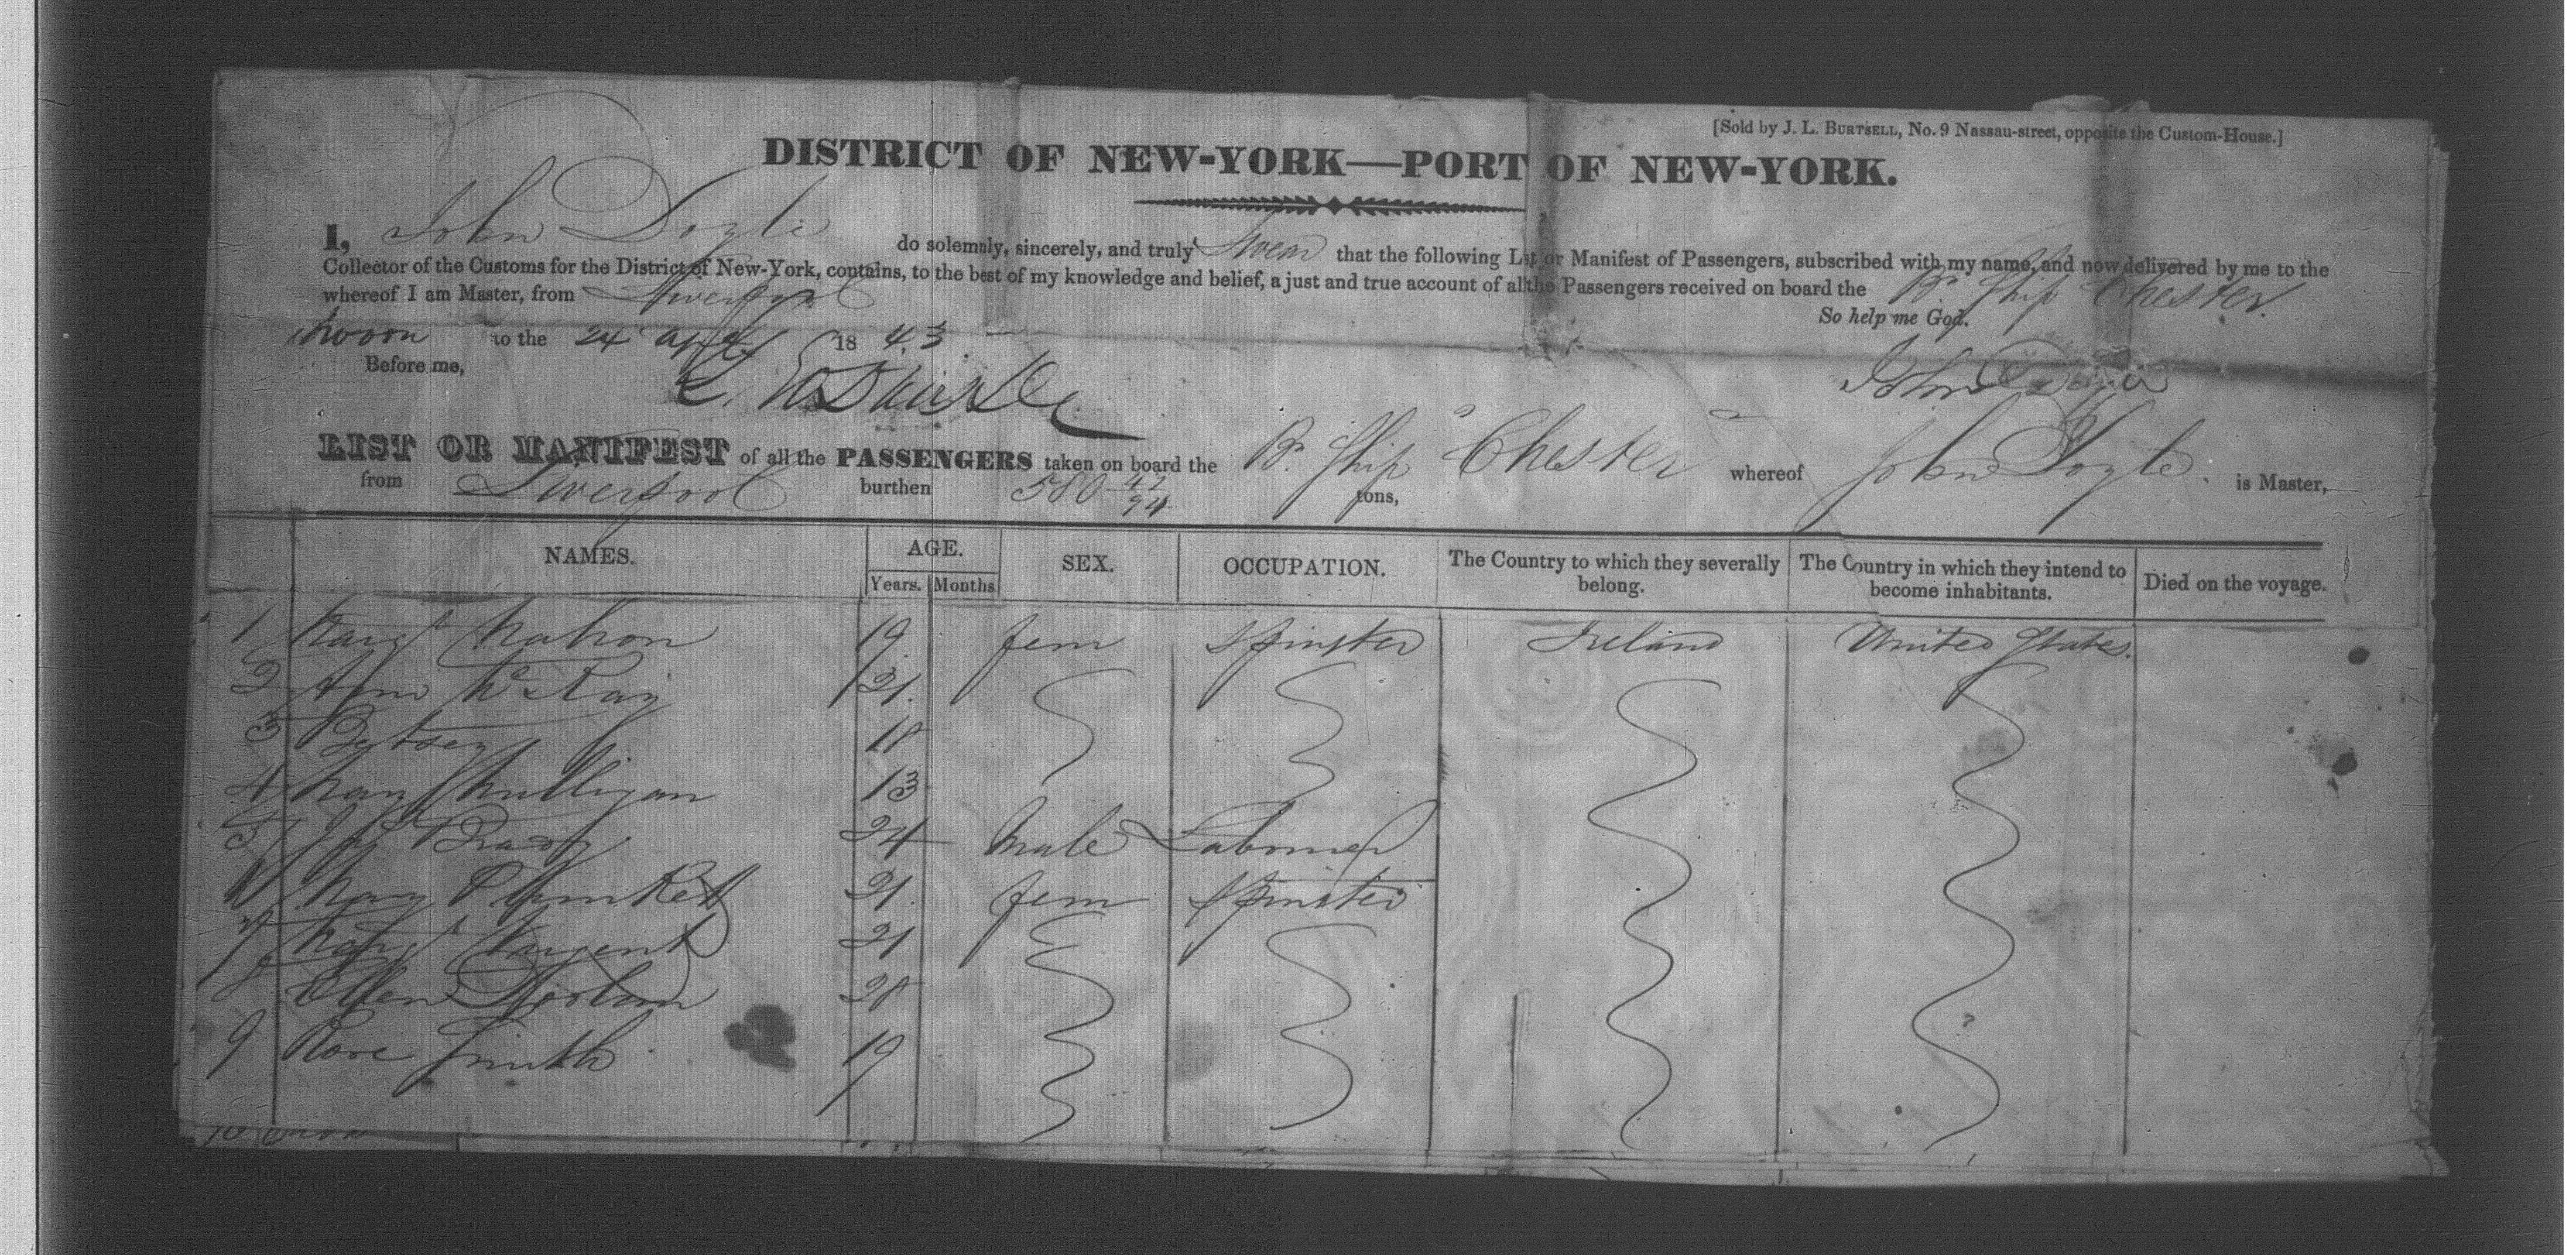 [Sold by J. L. BURTSELL, No. 9 Nassau-street, opposite the Custom-House.]
DISTRICT OF NEW-YORK—PORT OF NEW-YORK.
I, John Doyle do solemnly, sincerely, and truly Swear that the following List or Manifest of Passengers, subscribed with my name, and now delivered by me to the
Collector of the Customs for the District of New-York, contains, to the best of my knowledge and belief, a just and true account of all the Passengers received on board the Br Ship Chester
whereof I am Master, from Liverpool
So help me God.
Sworn to the 24 1843
Before me,
John Doyle
LIST OR MANIFEST of all the PASSENGERS taken on board the Br. Ship "Chester" whereof John Doyle is Master,
from Liverpool burthen 580 42/94 tons,
NAMES. AGE. SEX. OCCUPATION. The Country to which they severally belong. The Country in which they intend to become inhabitants. Died on the voyage.
Years. Months
1 Margt Mahon 19 fem Spinster Ireland United States.
2 Ann McKay 21.
3 Betsey 18
4 Mary Mulligan 13
5 Brady 24 Male Labourer
6 Mary Plunket 21. fem Spinster
7 Margt Nugent 21
8 Ellen 28
9 Rose Smith 19